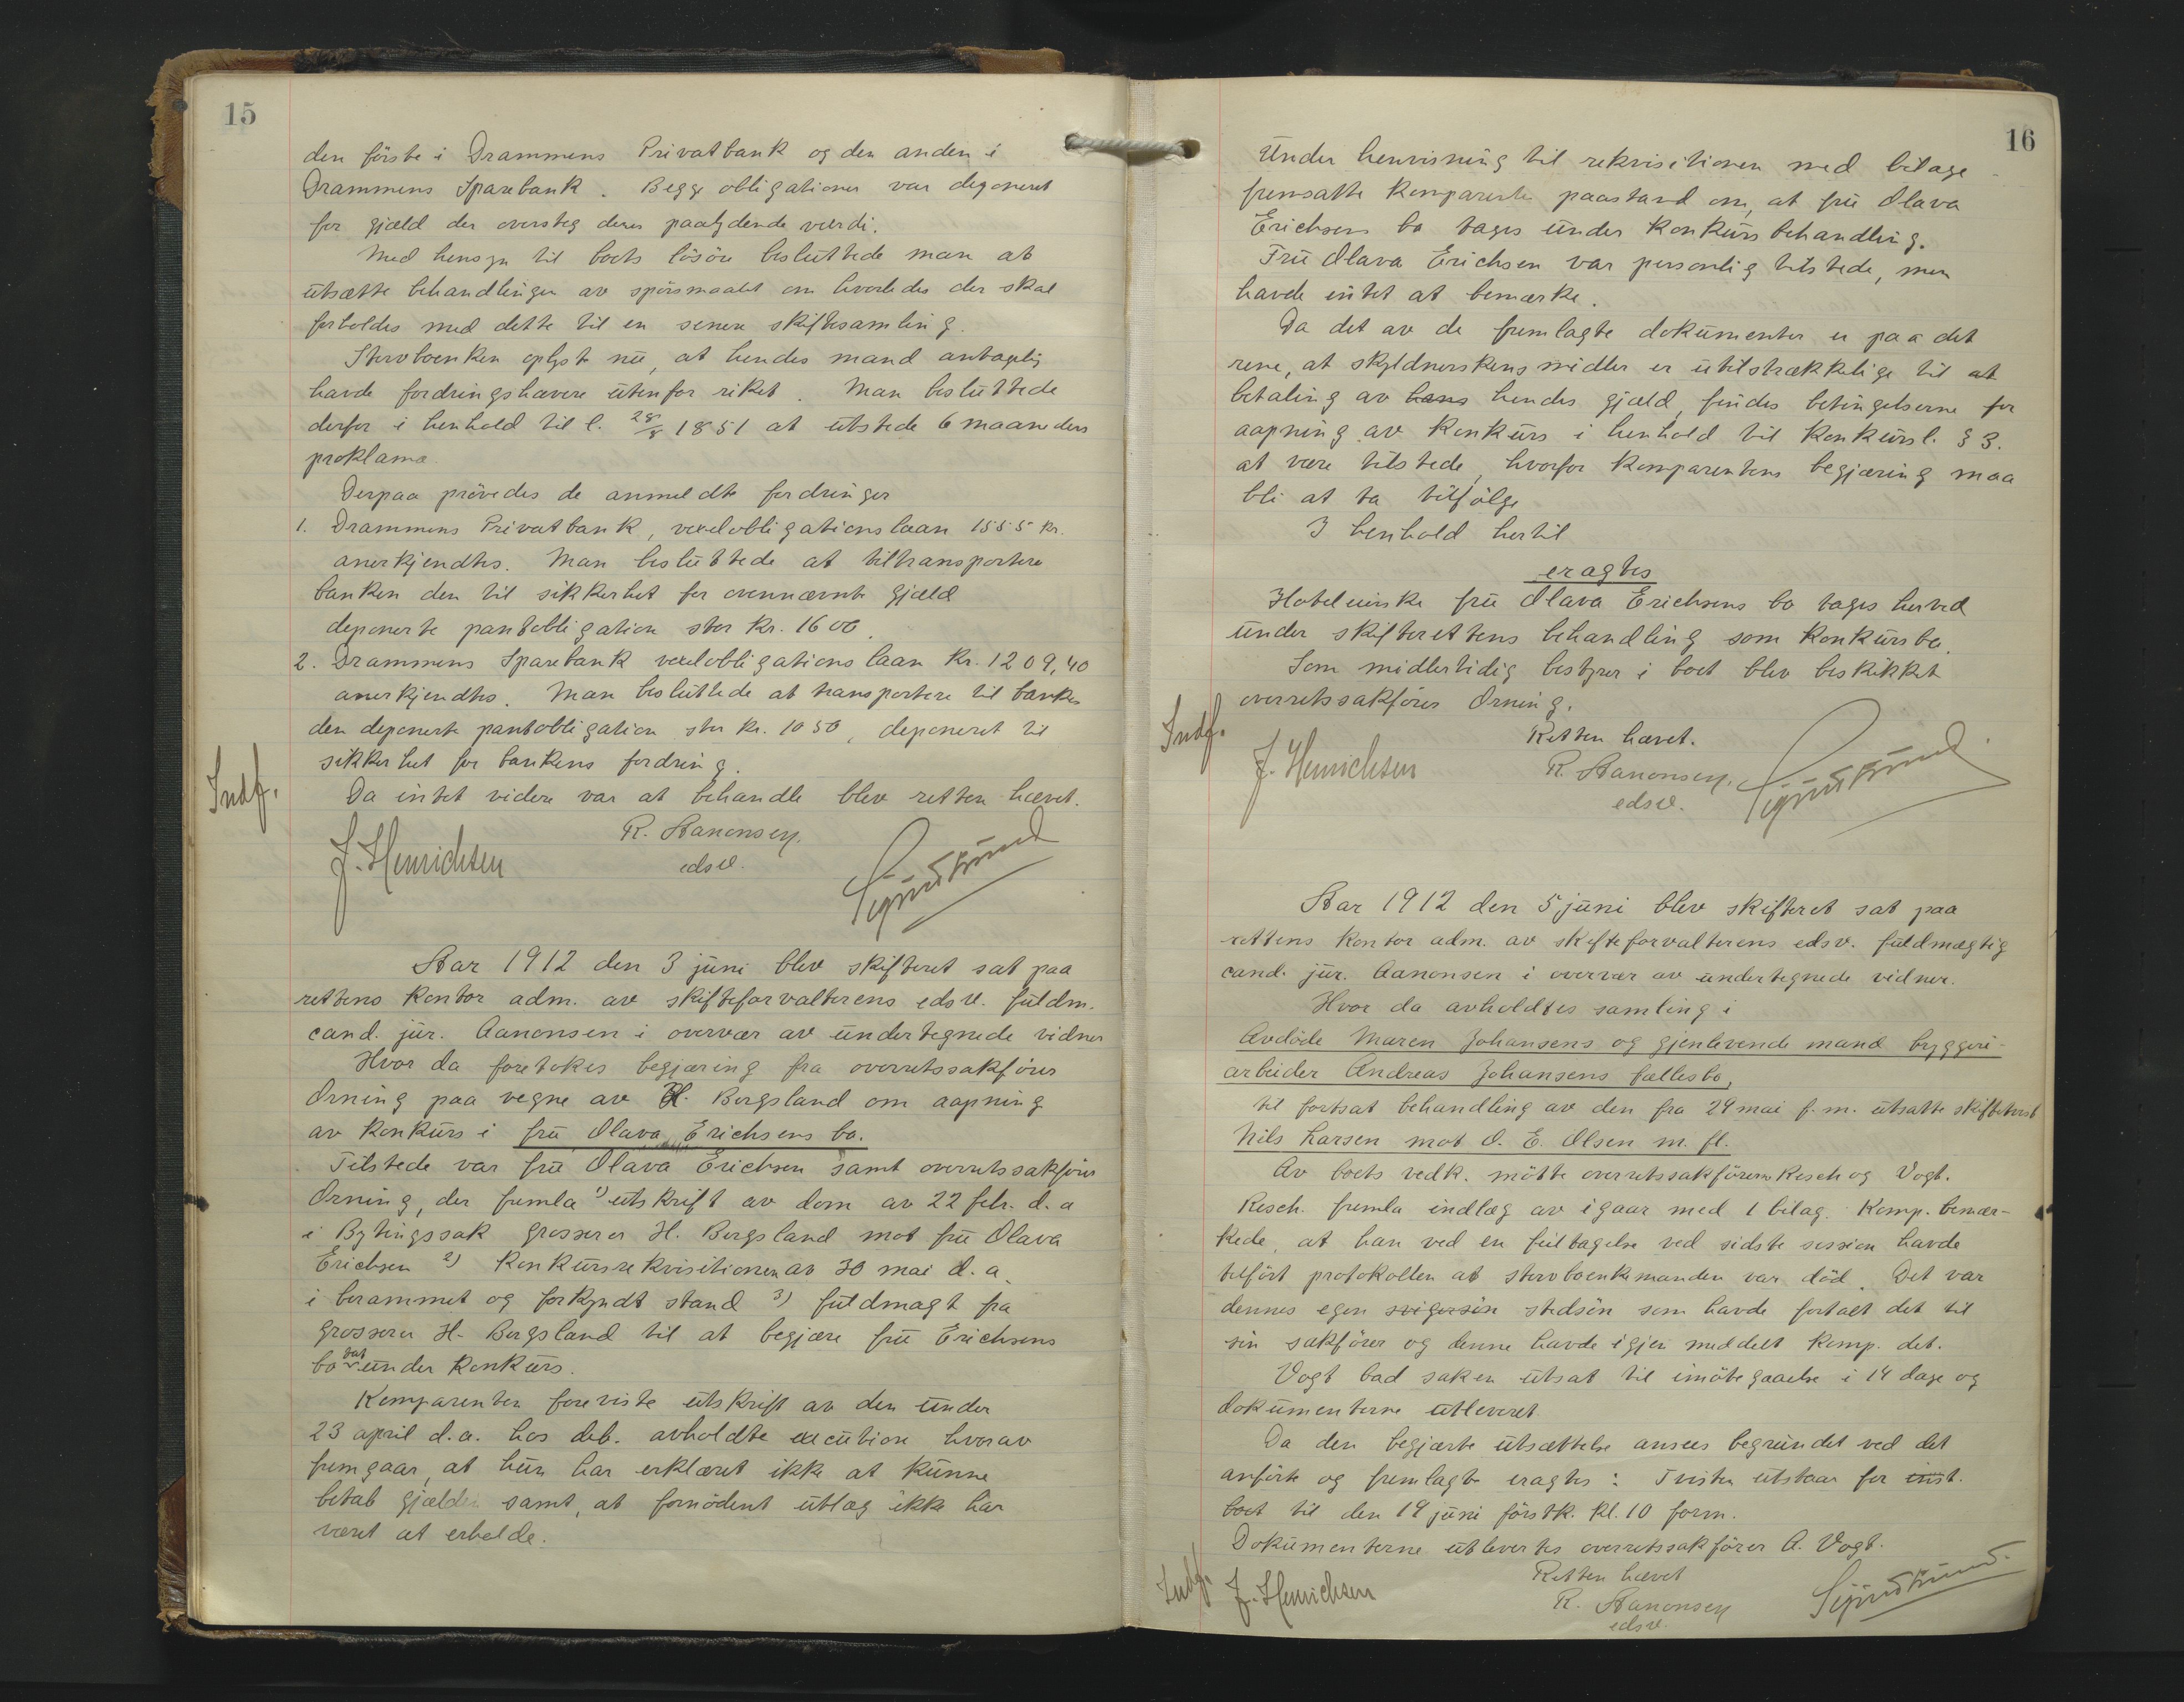 15
den første i Drammens Privatbank og den anden i
Drammens Sparebank. Begge obligationer var deponeret
for gjæld der oversteg deres paalydende værdi.
Med hensyn til boets løsøre besluttede man at
utsætte behandlingen av spørsmaalet om hvorledes der skal
forholdes med dette til en senere skiftesamling.
Stervboenken oplyste nu, at hendes mand antagelig
havde fordringshavere utenfor riket. Man besluttede
derfor i henhold til l. 28/8 1851 at utstede 6 maaneders
proklama.
Derpaa prøvedes de anmeldte fordringer
1. Drammens Privatbank, vexelobligationslaan 1555 kr.
anerkjendtes. Man besluttede at tiltransportere
banken den til sikkerhet for ovennævnte gjæld
deponerte pantobligation stor kr. 1600.
2. Drammens Sparebank vexelobligationslaan kr. 1209,40
anerkjendtes. Man besluttede at transportere til banken
den deponerte pantobligation stor kr. 1050, deponeret til
sikkerhet for bankens fordring.
Indf.
Da intet videre var at behandle blev retten hævet.
R. Aanonsen.
edsv.
J. Henrichsen
Aar 1912 den 3 juni blev skifteret sat paa
rettens kontor adm. av skifteforvalterens edsv. fuldm.
cand. jur. Aanonsen i overvær av undertegnede vidner
Hvor da foretokes begjæring fra overretssakfører
Orning paa vegne av H. Bergsland om aapning
av konkurs i fru Olava Erichsens bo.
Tilstede var fru Olava Erichsen samt overretssakfører
Orning, der fremla 1) utskrift av dom av 22 febr. d.a
i Bytingssak grosserer H. Bergsland mot fru Olava
Erichsen 2) konkursrekvisitionen av 30 mai d.a.
i berammet og forkyndt stand 3) fuldmagt fra
grosserer H. Bergsland til at begjære fru Erichsens
bo tat under konkurs.
Komparenten foreviste utskrift av den under
23 april d.a. hos deb. avholdte execution hvorav
fremgaar, at hun har erklæret ikke at kunne
betale gjælden samt, at fornødent utlæg ikke har
været at erholde.
16
Under henvisning til rekvisitionen med bilage
fremsatte komparenten paastand om, at fru Olava
Erichsens bo tages under konkursbehandling.
Fru Olava Erichsen var personlig tilstede, men
havde intet at bemærke.
Da det av de fremlagte dokumenter er paa det
rene, at skyldnerskens midler er utilstrækkelige til at
betaling av hans hendes gjæld, findes betingelserne for
aapning av konkurs i henhold til konkursl. § 3.
at være tilstede, hvorfor komparentens begjæring maa
bli at ta tilfølge
I henhold hertil
eragtes
Hoteleierske fru Olava Erichsens bo tages herved
under skifterettens behandling som konkursbo.
Som midlertidig bestyrer i boet blev beskikket
overretssakfører Orning.
Indf.
Retten hævet.
J. Henrichsen
R. Aanonsen.
edsv.
Aar 1912 den 5 juni blev skifteret sat paa
rettens kontor adm. av skifteforvalterens edsv. fuldmægtig
cand. jur. Aanonsen i overvær av undertegnede vidner.
Hvor da avholdtes samling i
Avdøde Maren Johansens og gjenlevende mand bryggeri-
arbeider Andreas Johansens fællesbo,
til fortsat behandling av den fra 29 mai f.m. utsatte skiftetvist
Nils Larsen mot O. E. Olsen m. fl.
Av boets vedk. møtte overretssakførerne Resch og Vogt.
Resch. fremla indlæg av igaar med 1 bilag. Komp. bemær-
kede, at han ved en feiltagelse ved sidste session havde
tilført protokollen at stervboenkemanden var død. Det var
dennes egen svigersøn stedsøn som havde fortalt det til
sin sakfører og denne havde igjen meddelt komp. det.
Vogt bad saken utsat til imøtegaaelse i 14 dage og
dokumenterne utleveret.
Da den begjærte utsættelse ansees begrundet ved det
anførte og fremlagte eragtes: Tvisten utstaar for
boet til den 19 juni førstk. kl. 10 form.
Dokumenterne utlevertes overretssakfører A. Vogt.
Retten hævet
Indf.
J. Henrichsen
R. Aanonsen
edsv.